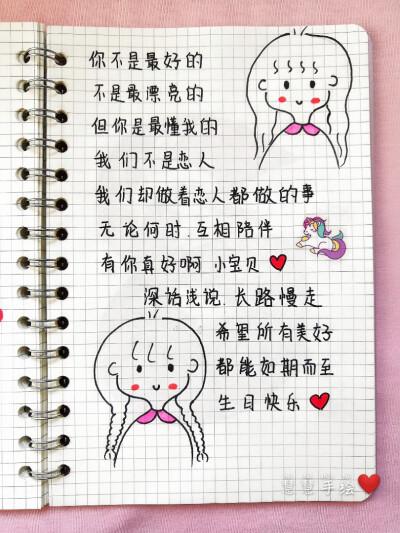 你不是最好的
不是最漂亮的
但你是最懂我的
我们不是恋人
我们却做着恋人都做的事
无论何时.互相陪伴
有你真好啊 小宝贝
深话浅说.长路慢走
希望所有美好
都能如期而至
生日快乐
慧慧手绘